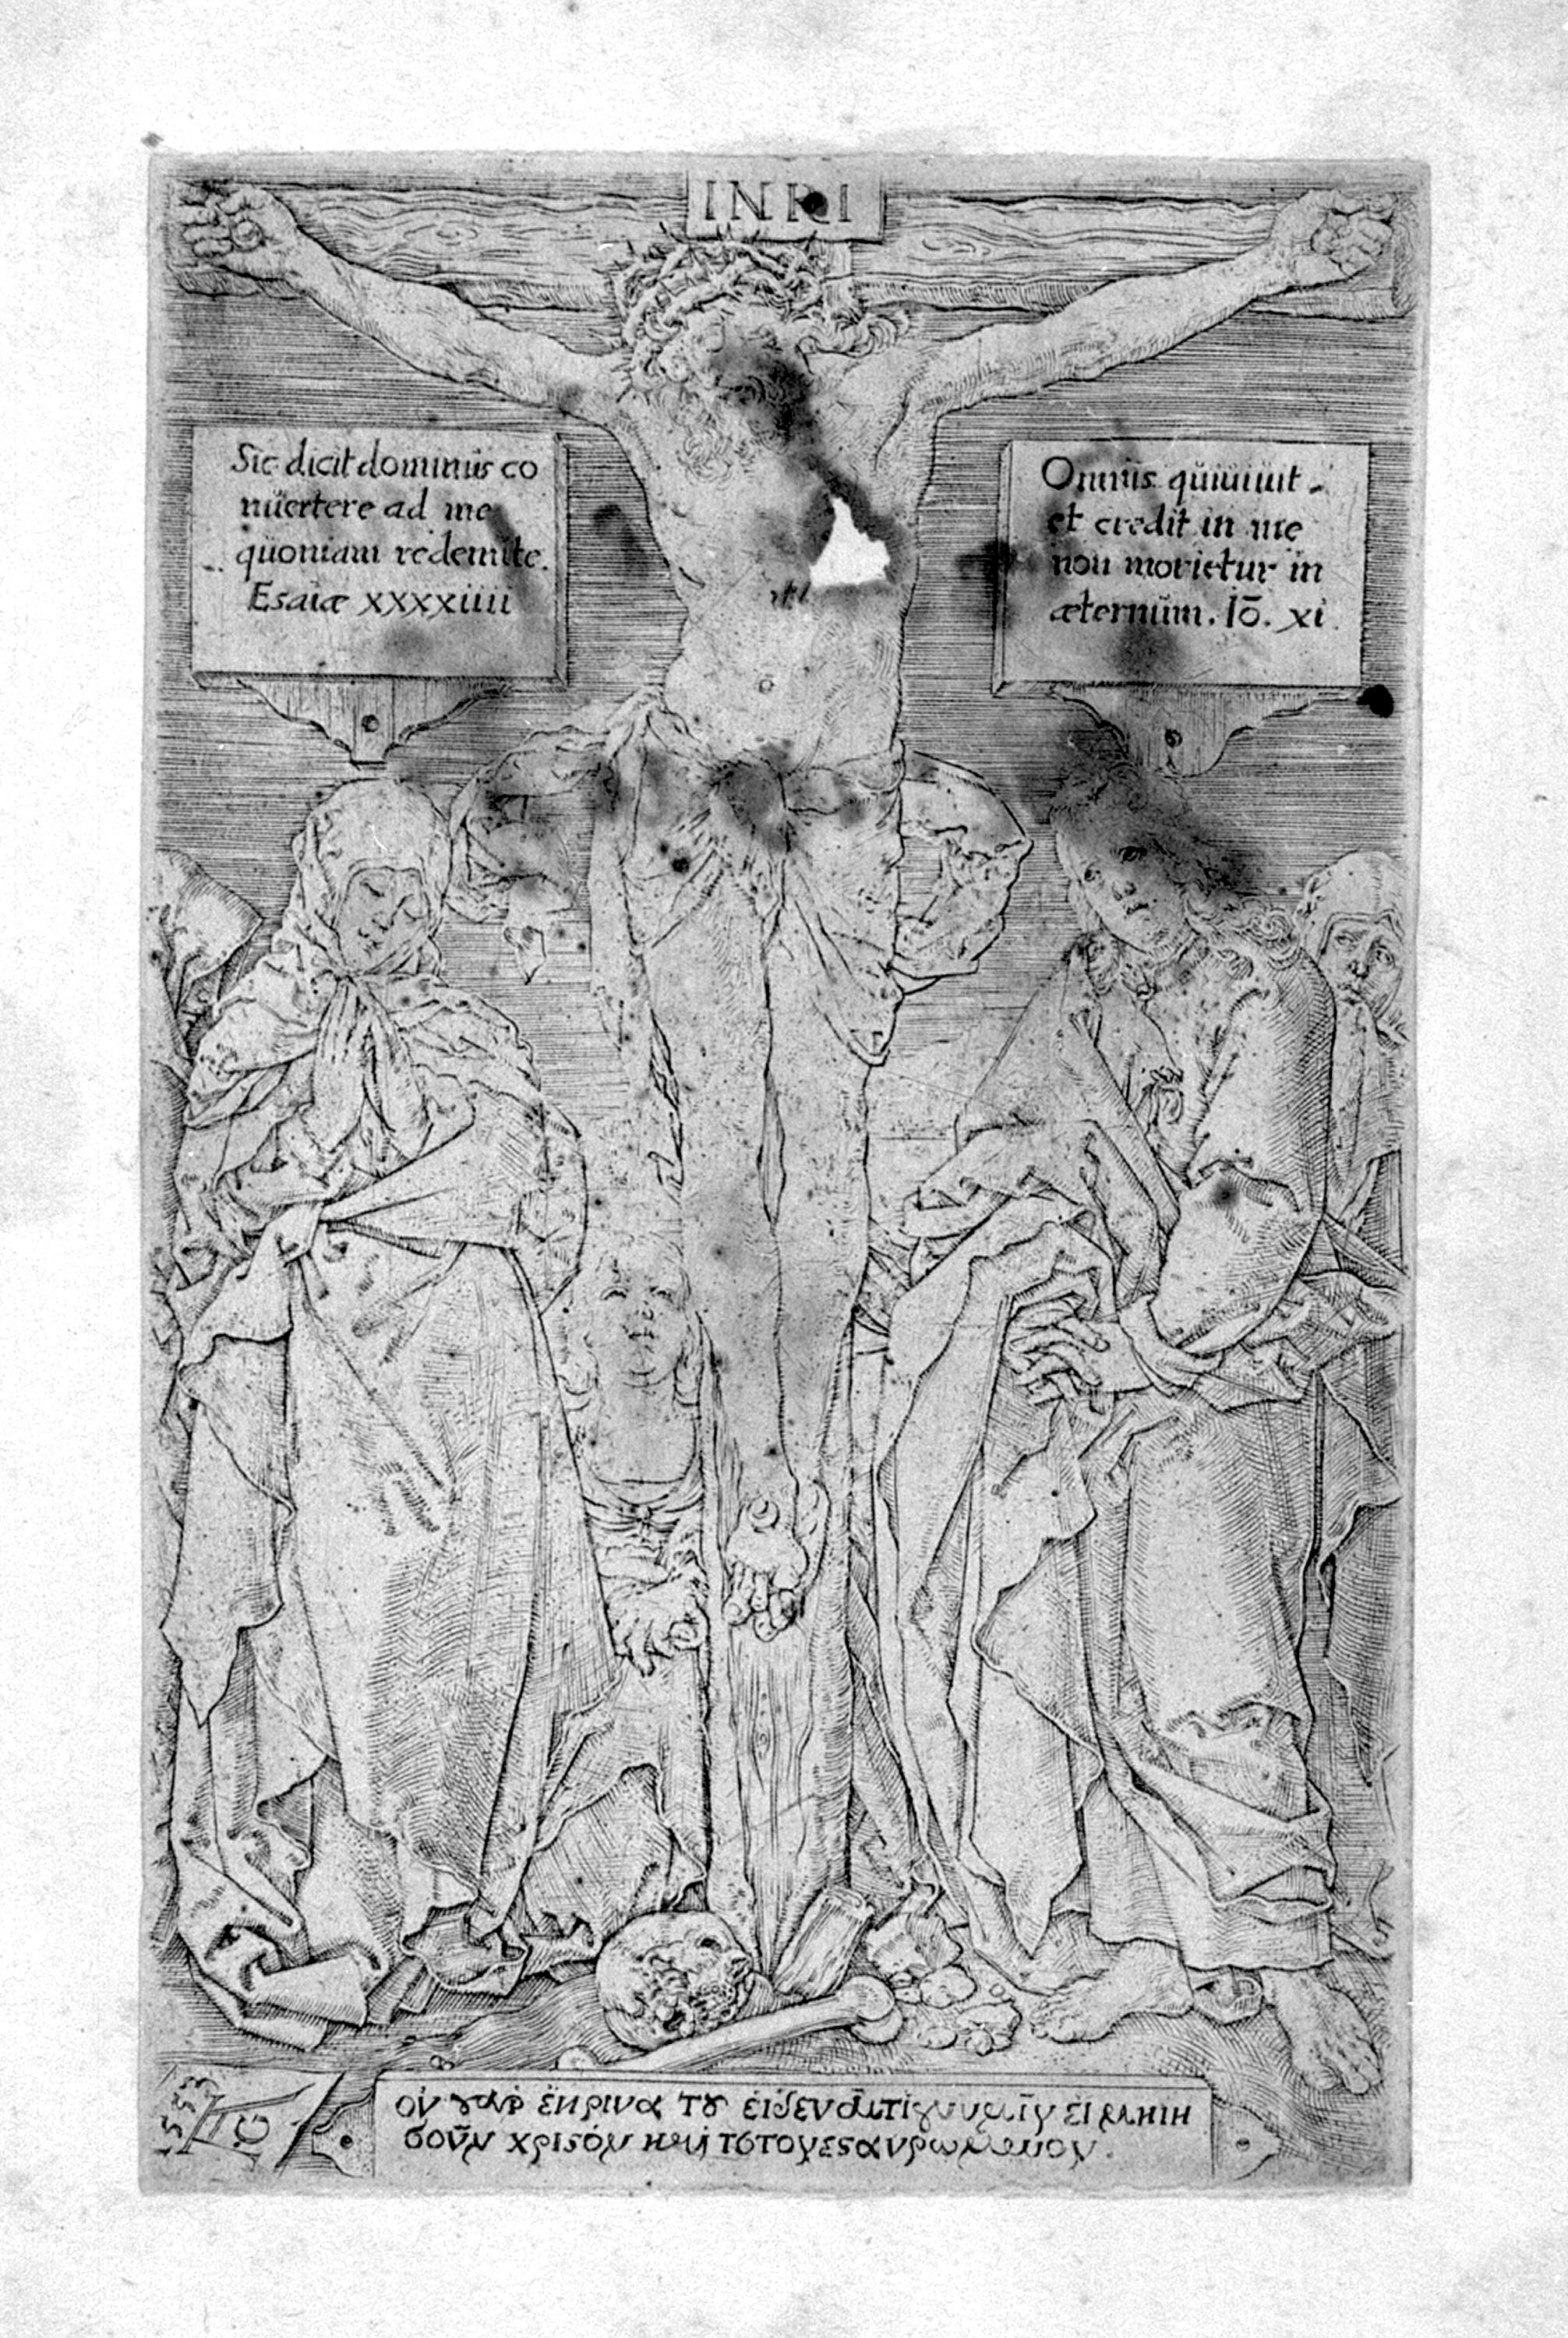 INRI
Sic dicit dominus co
nŭertere ad me
qŭoniam redemi te.
Esaiæ xxxxiiii
Omnis qŭi ŭiŭit
et credit in me
non morietur in
æternŭm. Iō. xi
οὐ γὰρ ἔκρινα τȣ εἰδέναι τὶ ἐν ὑμῖν εἰ μὴ ἰη
σοῦν χριϛὸν καὶ τȣτον εϛαυρωμενον.
1553